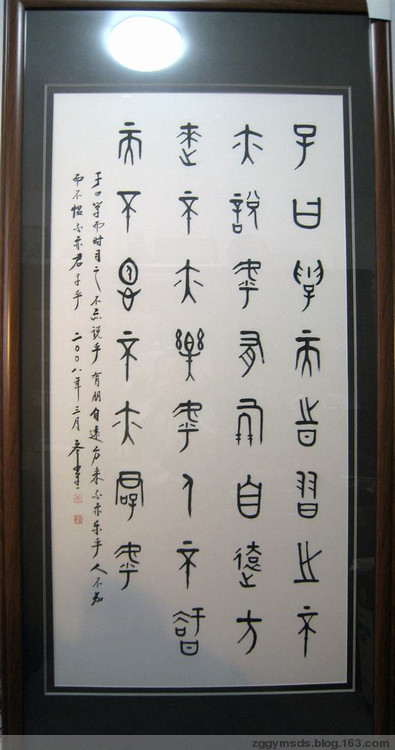 子曰學而時習之不
亦說乎有朋自遠方
來不亦樂乎人不知
而不慍不亦君乎
子曰学而时习之不亦说乎有朋自遠方来不亦乐乎人不知
而不愠不亦君子乎 二〇〇八年三月
zggymsds.blog.163.com